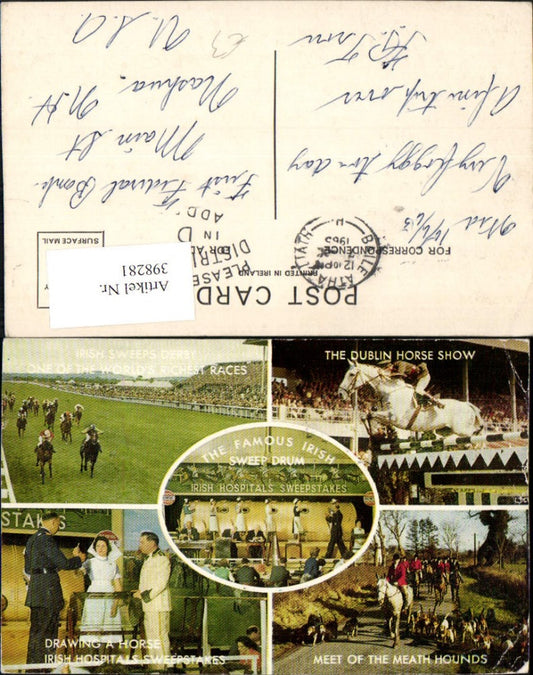 POST CARD
PRINTED IN IRELAND
FOR CORRESPONDENCE
SURFACE MAIL
PLEASE
IN
Artikel Nr.
398281
BAILE ATHA CLIATH
12
1963
Very foggy to-day
A fine trip over
First Federal Bank
Main St
Nashua, N.H.
U.S.A.
IRISH SWEEPS DERBY
ONE OF THE WORLD'S RICHEST RACES
THE DUBLIN HORSE SHOW
THE FAMOUS IRISH
SWEEP DRUM
IRISH HOSPITALS SWEEPSTAKES
STAKES
DRAWING A HORSE
IRISH HOSPITALS SWEEPSTAKES
MEET OF THE MEATH HOUNDS